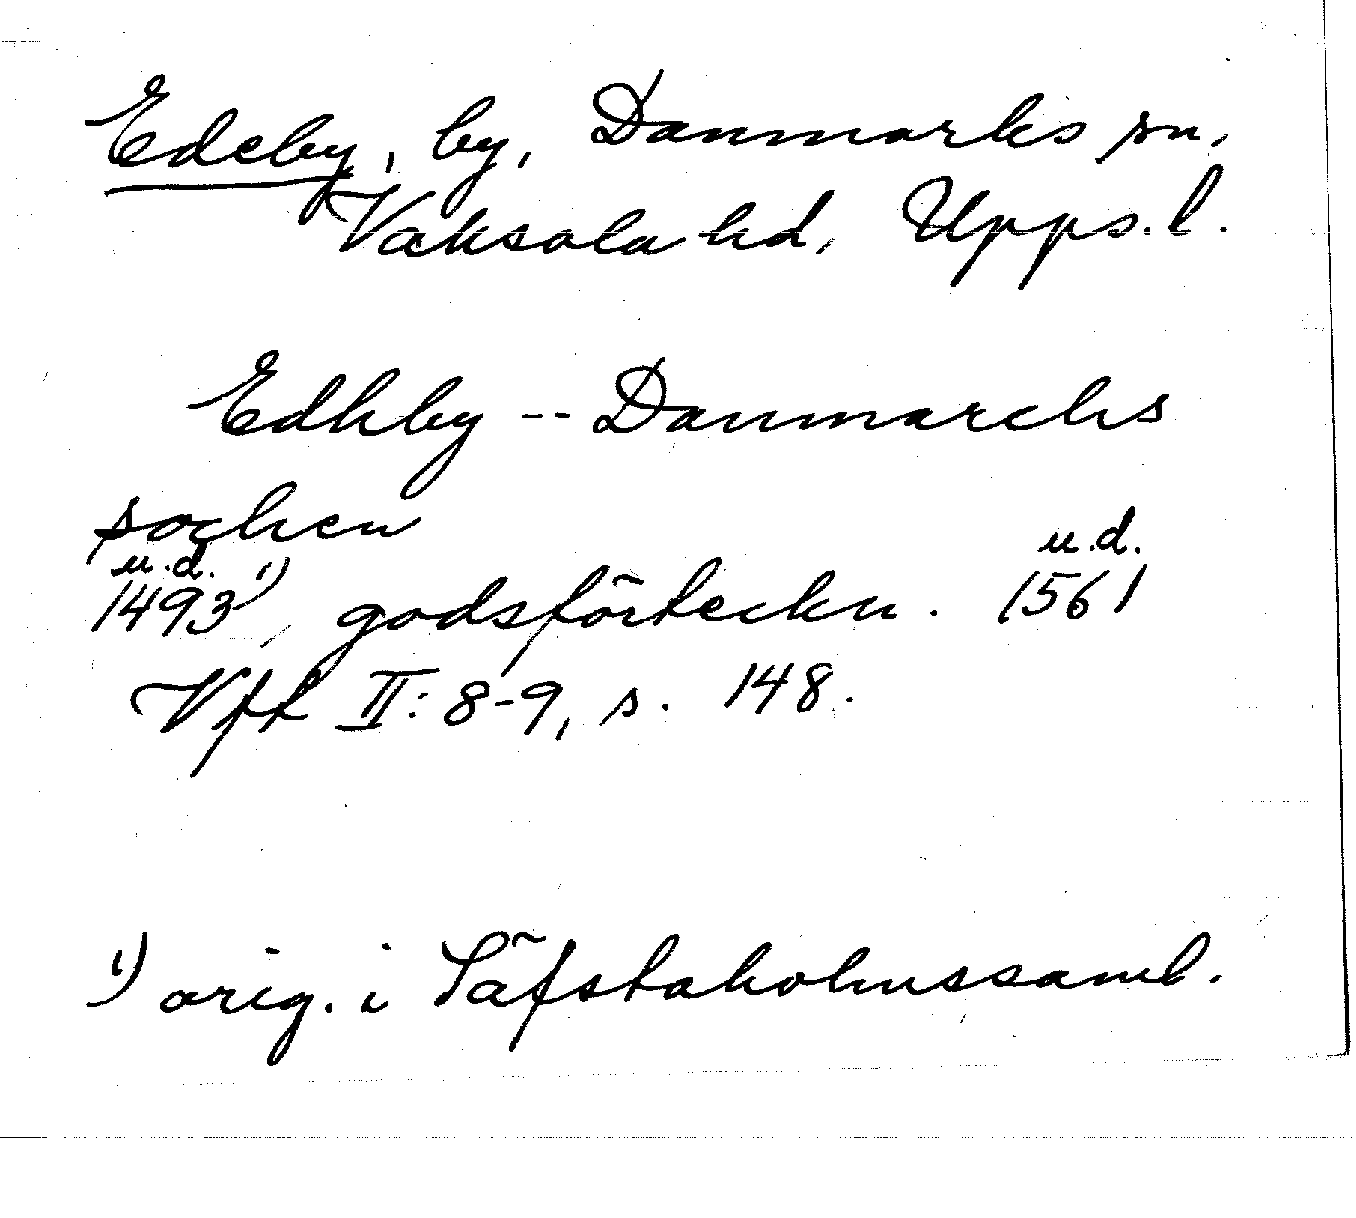 Edeby, by, Danmarks sn,
Vaksala hd, Upps. l.
Edhby -- Danmarchs
sochen
u.d. u.d.
1493¹⁾, godsförteckn. 1561
Vfr II: 8-9, s. 148.
¹⁾ orig. i Säfstaholmssaml.